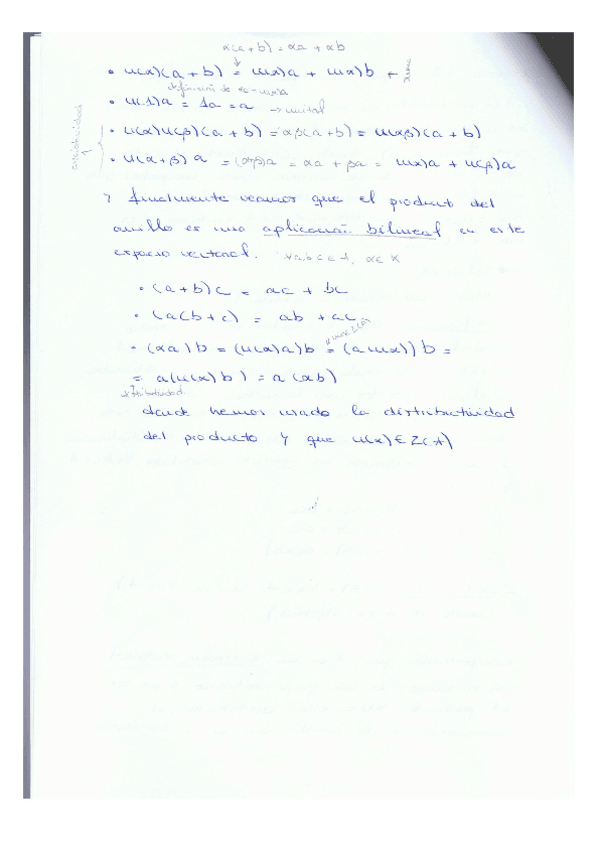 α(a+b) = αa + αb
• u(α)(a+b) = u(α)a + u(α)b ←
definición de
• u(1)a = 1a = a → unital
asociatividad
• u(α)u(β)(a+b) = αβ(a+b) = u(αβ)(a+b)
• u(α+β)a = (α+β)a = αa + βa = u(α)a + u(β)a
Y finalmente veamos que el producto del
anillo es una aplicación bilineal en este
espacio vectorial. ∀a,b,c ∈ A, α ∈ K
• (a+b)c = ac + bc
• (a(b+c) = ab + ac
• (αa)b = (u(α)a)b = (a u(α))b =
= a(u(α)b) = a(αb)
distributividad
donde hemos usado la distributividad
del producto y que u(α) ∈ Z(A)